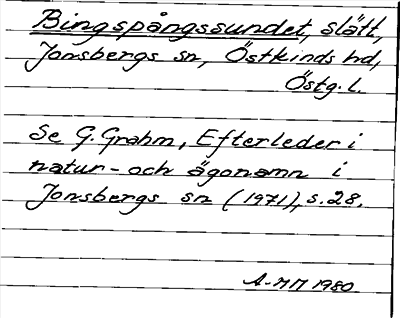 Bingspångssundet, slätt,
Jonsbergs sn, Östkinds hd,
Östg. l.
Se G. Grahm, Efterleder i
natur- och ägonamn i
Jonsbergs sn (1971), s. 28.
1980